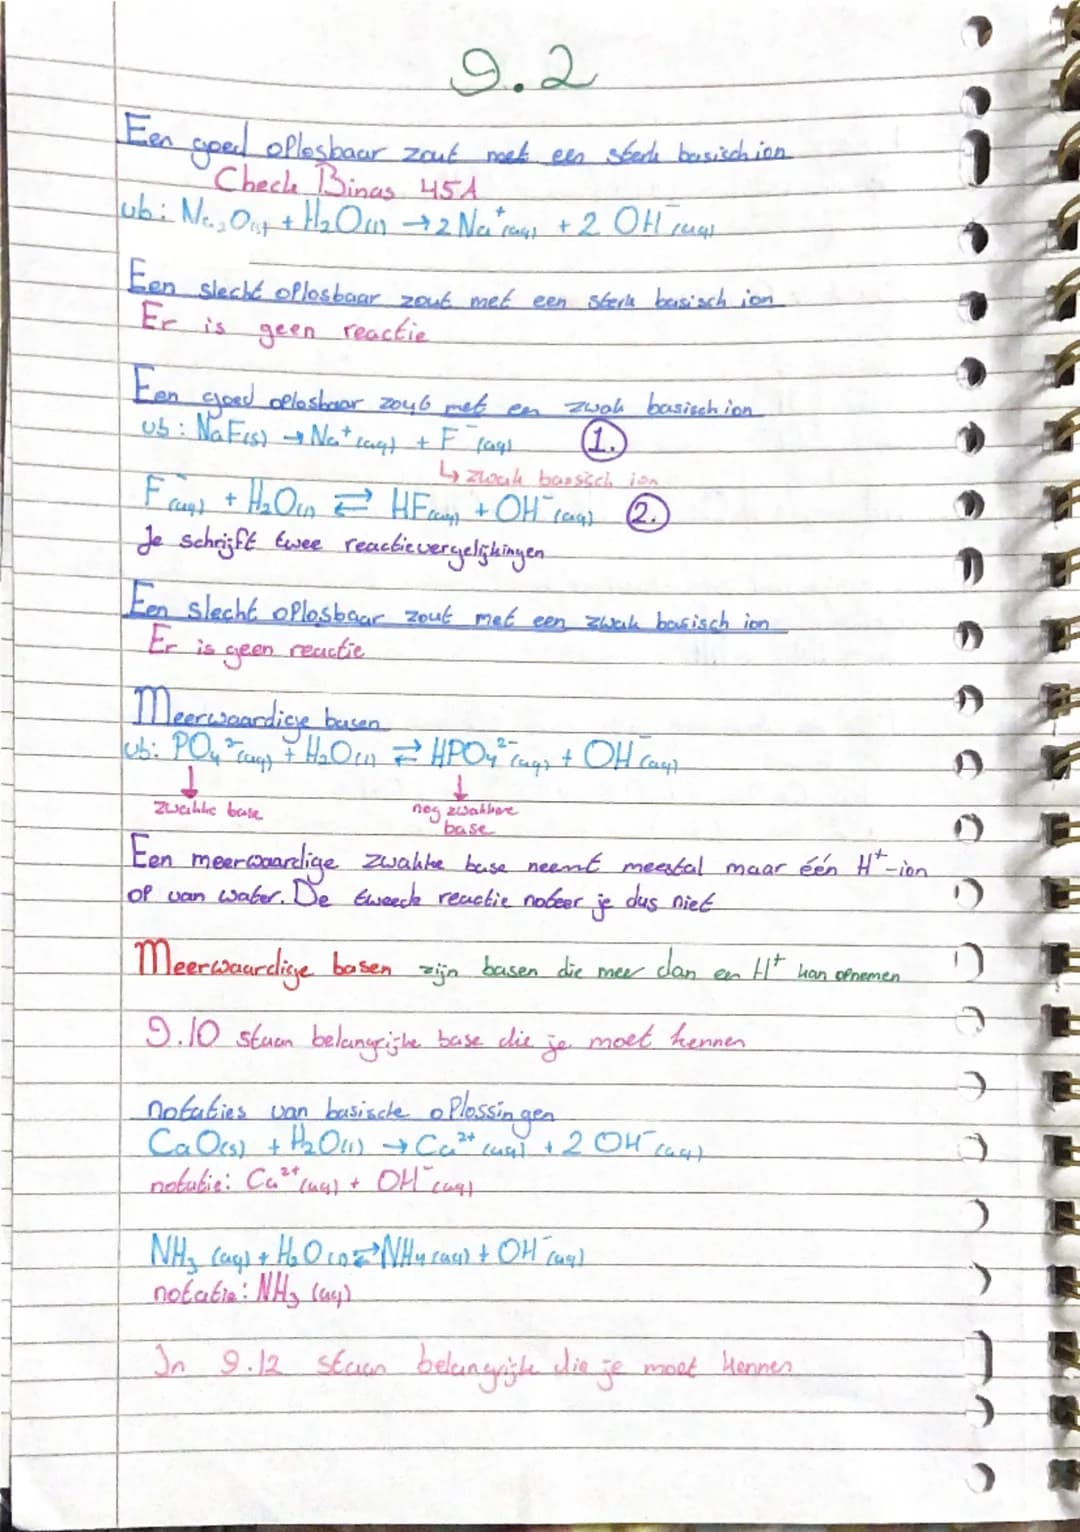 9.2
Een goed oplosbaar zout met een sterk basisch ion
Check Binas 45A
vb: Na₂O(s) + H₂O(l) → 2 Na⁺(aq) + 2 OH⁻(aq)
Een slecht oplosbaar zout met een sterk basisch ion
Er is geen reactie
Een goed oplosbaar zout met en zwak basisch ion
vb: NaF(s) → Na⁺(aq) + F⁻(aq) 1.
↳ zwak bassisch ion
F⁻(aq) + H₂O(l) ⇄ HF(aq) + OH⁻(aq) 2.
Je schrijft twee reactievergelijkingen
Een slecht oplosbaar zout met een zwak basisch ion
Er is geen reactie
Meerwaardige basen
vb: PO₄²⁻(aq) + H₂O(l) ⇄ HPO₄²⁻(aq) + OH⁻(aq)
↓ ↓
zwakke base nog zwakkere
base
Een meerwaardige zwakke base neemt meestal maar één H⁺-ion
op van water. De tweede reactie noteer je dus niet
Meerwaardige basen zijn basen die meer dan en H⁺ kan opnemen
9.10 staan belangrijke base die je moet kennen
notaties van basische oplossingen
CaO(s) + H₂O(l) → Ca²⁺(aq) + 2 OH⁻(aq)
notatie: Ca²⁺(aq) + OH⁻(aq)
NH₃ (aq) + H₂O(l) ⇄ NH₄(aq) + OH⁻(aq)
notatie: NH₃ (aq)
In 9.12 staan belangrijke die je moet kennen